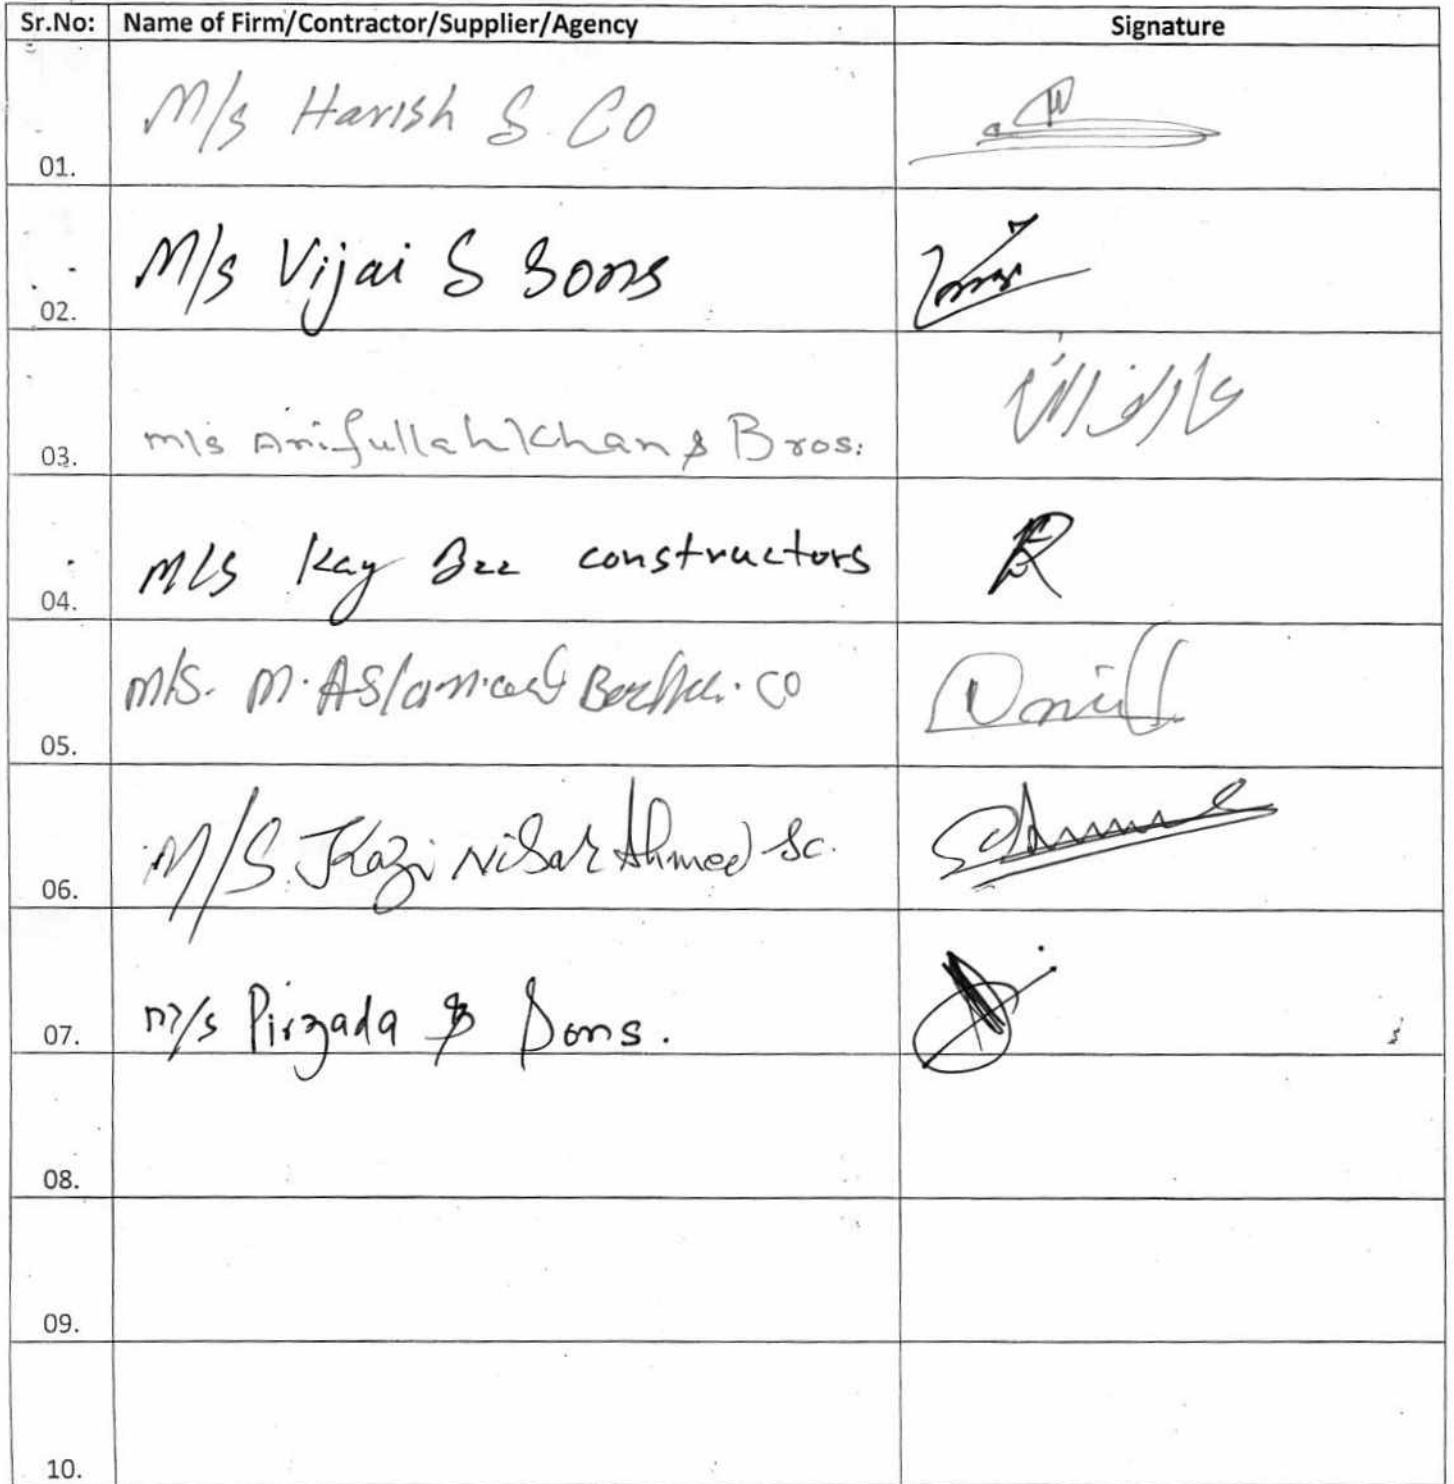 Sr.No: Name of Firm/Contractor/Supplier/Agency Signature
01. M/s Harish & CO
02. M/s Vijai & Sons
03. M/s Arifullah Khan & Bros.
04. M/S Kay Bee constructors
05. M/S. M. Aslam CO
06. M/S. Kazi Nisar Ahmed
07. M/s Pirzada & Sons.
08.
09.
10.